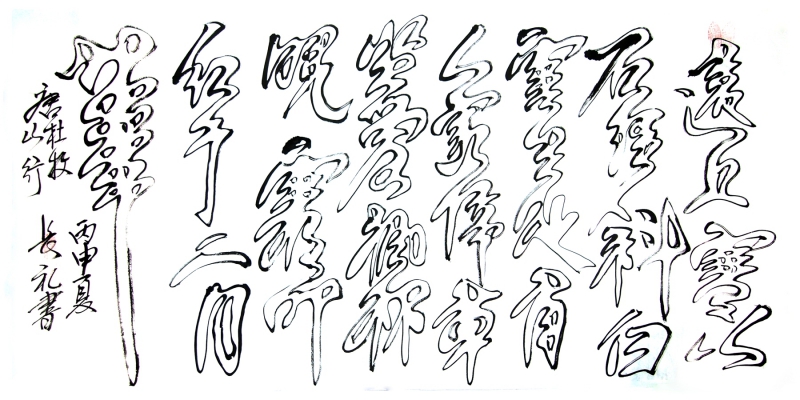 遠上寒山
石徑斜白
雲生处有
人家停車
坐愛楓林
晚霜叶
紅于二月
花
唐杜牧
山行
丙申夏
長礼書